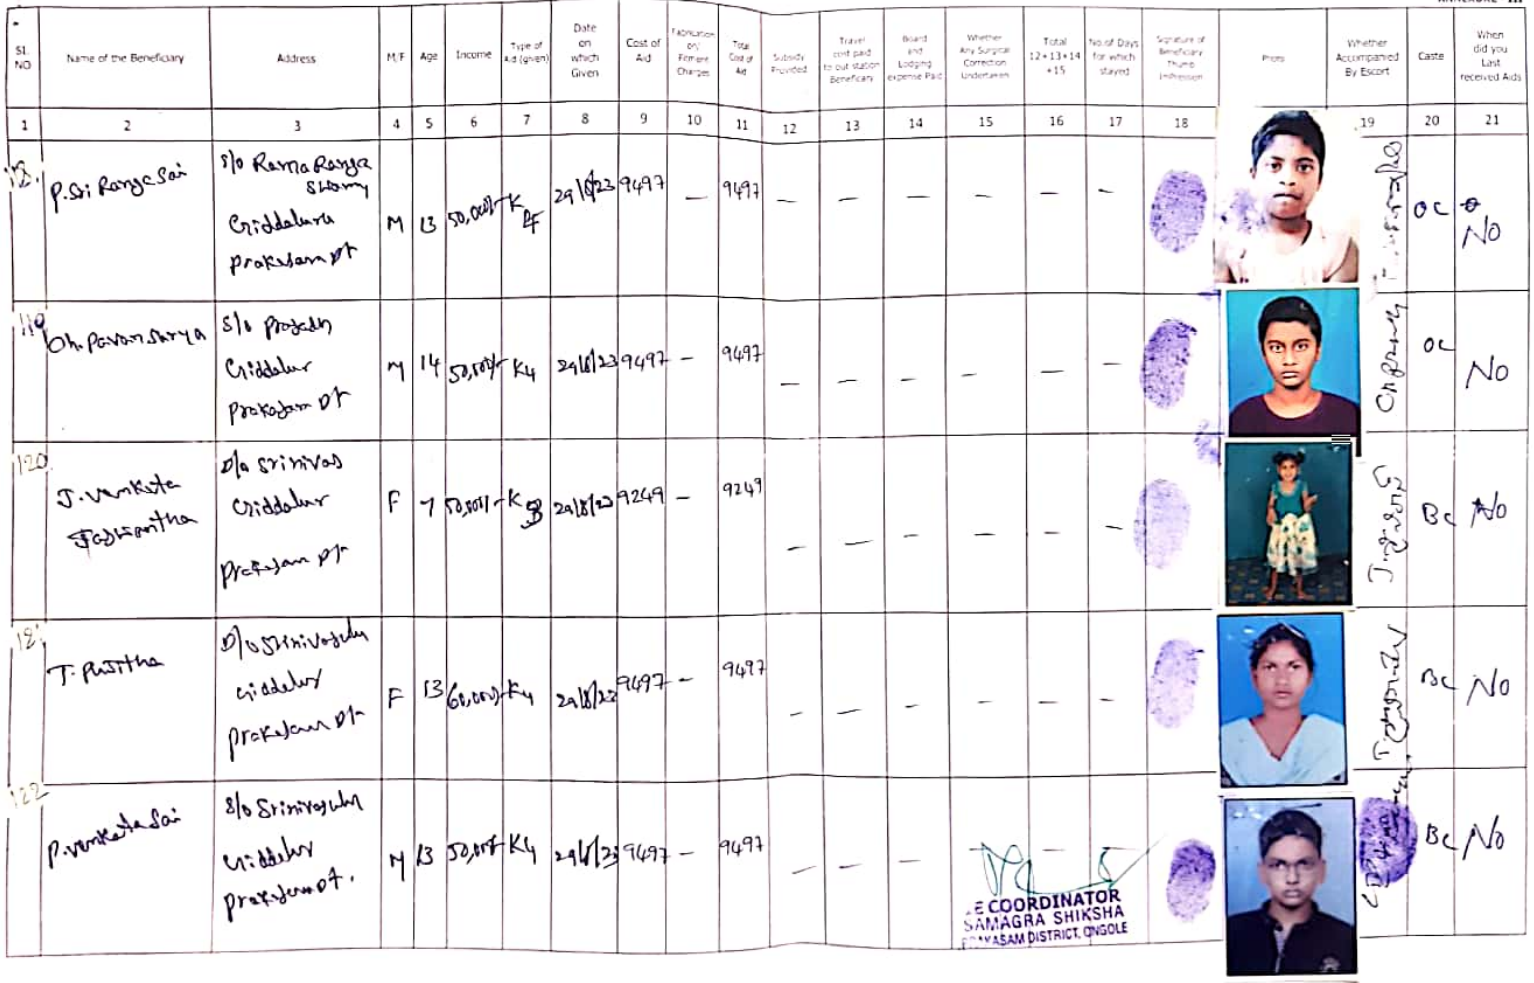 ANNEXURE - III
SI. NO
Name of the Beneficiary
Address
M/F
Age
Income
Type of Aid (given)
Date on which Given
Cost of Aid
Total Cost of Aid
Subsidy Provided
Travel cost paid to out station Beneficiary
Board and Lodging expense Paid
Whether Any Surgical Correction Undertaken
Total 12+13+14+15
No. of Days for which stayed
Signature of Beneficiary Thumb Impression
Photo
Whether Accompanied By Escort
Caste
When did you Last received Aids
1 2 3 4 5 6 7 8 9 10 11 12 13 14 15 16 17 18 19 20 21
P. Sri Ranga Sai
S/o Rama Ranga
Swamy
Giddaluru
Prakasam Dt
M 13 50,000/- K 29/8/23 9497 — 9497 — — — — — — OC No
119
Ch. Pavan Surya
S/o
Giddalur
Prakasam Dt
M 14 50,000/- K4 29/8/23 9497 — 9497 — — — — — — OC No
120
J. Venkata
D/o Srinivas
Giddalur
Prakasam Dt
F 7 50,000/- K 29/8/23 9249 — 9249 — — — — — — BC No
T. Pujitha
D/o Srinivasulu
Giddalur
Prakasam Dt
F 13 60,000/- K4 29/8/23 9497 — 9497 — — — — — — BC No
122
P. Venkata Sai
S/o Srinivasulu
Giddalur
Prakasam Dt.
M 13 50,000/- K4 29/8/23 9497 — 9497 — — — — — — BC No
COORDINATOR
SAMAGRA SHIKSHA
PRAKASAM DISTRICT, ONGOLE